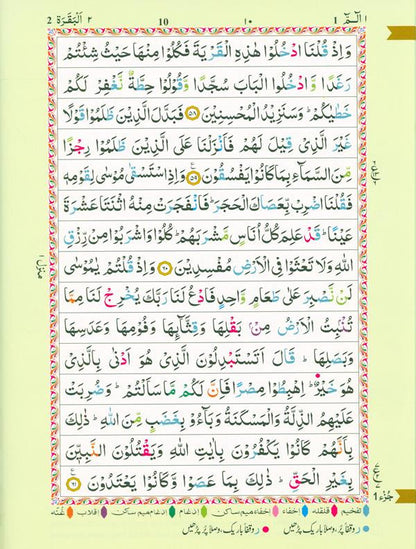 الٓمّٓ ١ 10 ١٠ ٢ اَلْبَقَرَة 2
وَاِذْ قُلْنَا ادْخُلُوْا هٰذِهِ الْقَرْيَةَ فَكُلُوْا مِنْهَا حَيْثُ شِئْتُمْ
رَغَدًا وَّادْخُلُوا الْبَابَ سُجَّدًا وَّقُوْلُوْا حِطَّةٌ نَّغْفِرْ لَكُمْ
خَطٰيٰكُمْ ؕ وَسَنَزِيْدُ الْمُحْسِنِيْنَ ۝٥٨ فَبَدَّلَ الَّذِيْنَ ظَلَمُوْا قَوْلًا
غَيْرَ الَّذِيْ قِيْلَ لَهُمْ فَاَنْزَلْنَا عَلَى الَّذِيْنَ ظَلَمُوْا رِجْزًا
مِّنَ السَّمَآءِ بِمَا كَانُوْا يَفْسُقُوْنَ ۝٥٩ وَاِذِ اسْتَسْقٰى مُوْسٰى لِقَوْمِهٖ
فَقُلْنَا اضْرِبْ بِّعَصَاكَ الْحَجَرَ ؕ فَانْفَجَرَتْ مِنْهُ اثْنَتَا عَشْرَةَ
عَيْنًا ؕ قَدْ عَلِمَ كُلُّ اُنَاسٍ مَّشْرَبَهُمْ ؕ كُلُوْا وَاشْرَبُوْا مِنْ رِّزْقِ
اللّٰهِ وَلَا تَعْثَوْا فِى الْاَرْضِ مُفْسِدِيْنَ ۝٦٠ وَاِذْ قُلْتُمْ يٰمُوْسٰى
لَنْ نَّصْبِرَ عَلٰى طَعَامٍ وَّاحِدٍ فَادْعُ لَنَا رَبَّكَ يُخْرِجْ لَنَا مِمَّا
تُنْۢبِتُ الْاَرْضُ مِنْۢ بَقْلِهَا وَقِثَّآئِهَا وَفُوْمِهَا وَعَدَسِهَا
وَبَصَلِهَا ؕ قَالَ اَتَسْتَبْدِلُوْنَ الَّذِيْ هُوَ اَدْنٰى بِالَّذِيْ
هُوَ خَيْرٌ ؕ اِهْبِطُوْا مِصْرًا فَاِنَّ لَكُمْ مَّا سَاَلْتُمْ ؕ وَضُرِبَتْ
عَلَيْهِمُ الذِّلَّةُ وَالْمَسْكَنَةُ وَبَآءُوْ بِغَضَبٍ مِّنَ اللّٰهِ ؕ ذٰلِكَ
بِاَنَّهُمْ كَانُوْا يَكْفُرُوْنَ بِاٰيٰتِ اللّٰهِ وَيَقْتُلُوْنَ النَّبِيّٖنَ
بِغَيْرِ الْحَقِّ ؕ ذٰلِكَ بِمَا عَصَوْا وَّكَانُوْا يَعْتَدُوْنَ ۝٦١
منزل ١
جُزْء 1
تفخیم قلقلہ اخفاء اخفاء میم ساکن ادغام ادغام میم ساکن اقلاب غُنّہ